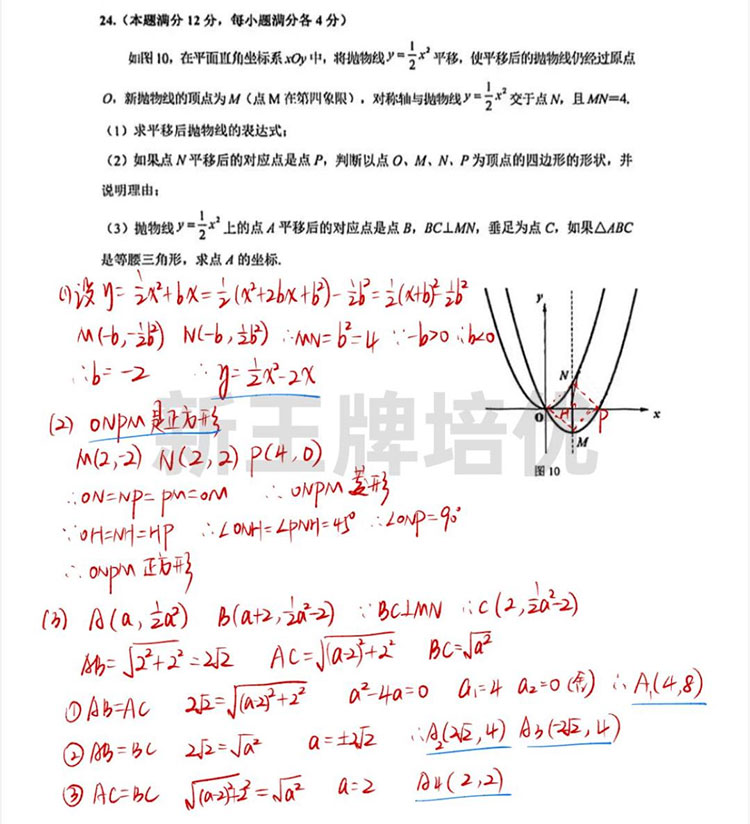 24.（本题满分 12 分，每小题满分各 4 分）
如图 10，在平面直角坐标系 xOy 中，将抛物线 y=1/2x² 平移，使平移后的抛物线仍经过原点
O，新抛物线的顶点为 M（点 M 在第四象限），对称轴与抛物线 y=1/2x² 交于点 N，且 MN=4.
（1）求平移后抛物线的表达式；
（2）如果点 N 平移后的对应点是点 P，判断以点 O、M、N、P 为顶点的四边形的形状，并
说明理由；
（3）抛物线 y=1/2x² 上的点 A 平移后的对应点是点 B，BC⊥MN，垂足为点 C，如果△ABC
是等腰三角形，求点 A 的坐标.
(1)设 y=1/2x²+bx=1/2(x²+2bx+b²)-1/2b²=1/2(x+b)²-1/2b²
M(-b,-1/2b²) N(-b,1/2b²) ∴MN=b²=4 ∵-b>0 ∴b<0
∴b=-2 ∴y=1/2x²-2x
(2) ONPM是正方形
M(2,-2) N(2,2) P(4,0)
∴ON=NP=PM=OM ∴ONPM菱形
∵OH=NH=HP ∴∠ONH=∠PNH=45° ∴∠ONP=90°
∴ONPM正方形
y
N
O
H
P
x
M
图 10
新王牌培优
(3) A(a,1/2a²) B(a+2,1/2a²-2) ∵BC⊥MN ∴C(2,1/2a²-2)
AB=√2²+2²=2√2 AC=√(a-2)²+2² BC=√a²
①AB=AC 2√2=√(a-2)²+2² a²-4a=0 a₁=4 a₂=0(舍) ∴A₁(4,8)
②AB=BC 2√2=√a² a=±2√2 ∴A₂(2√2,4) A₃(-2√2,4)
③AC=BC √(a-2)²+2²=√a² a=2 A4(2,2)